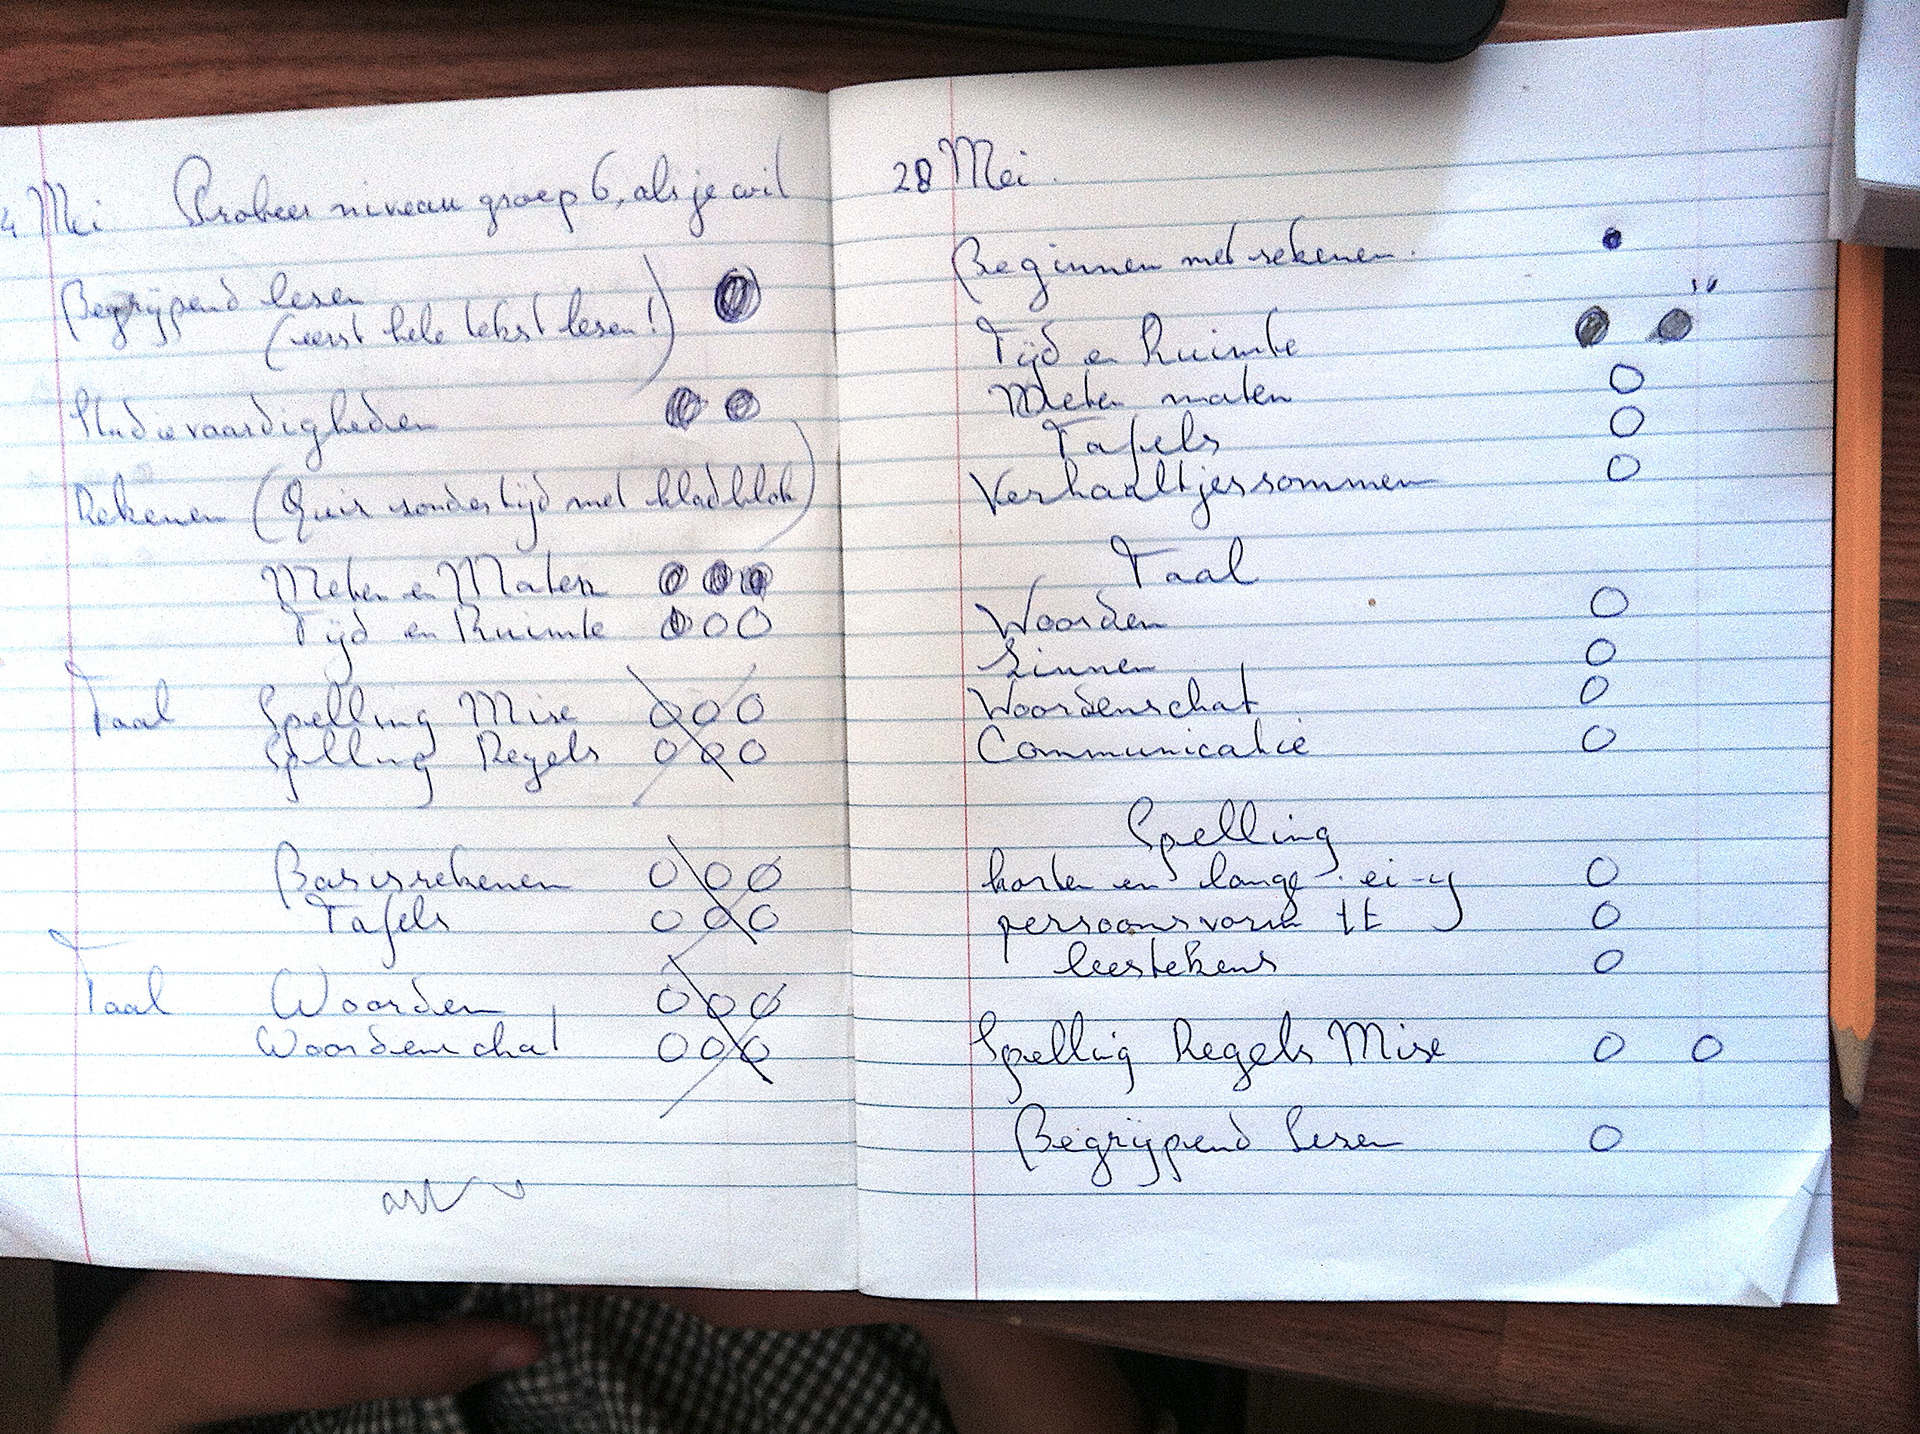 4 Mei Probeer niveau groep 6, als je wil
Begrijpend lesen
(eerst hele tekst lesen!)
Studievaardigheden
Rekenen (Quiz zonder tijd met kladblok)
Meten en Maten
Tijd en Ruimte
Taal Spelling Mix
Spelling Regels
Basisrekenen
Tafels
Taal Woorden
Woordenschat
28 Mei.
Beginnen met rekenen.
Tijd en Ruimte
Meten maten
Tafels
Verhaaltjessommen
Taal
Woorden
Zinnen
Woordenschat
Communicatie
Spelling
korte en lange ei-y
persoonsvorm tt
leestekens
Spelling Regels Mixe
Begrijpend lesen